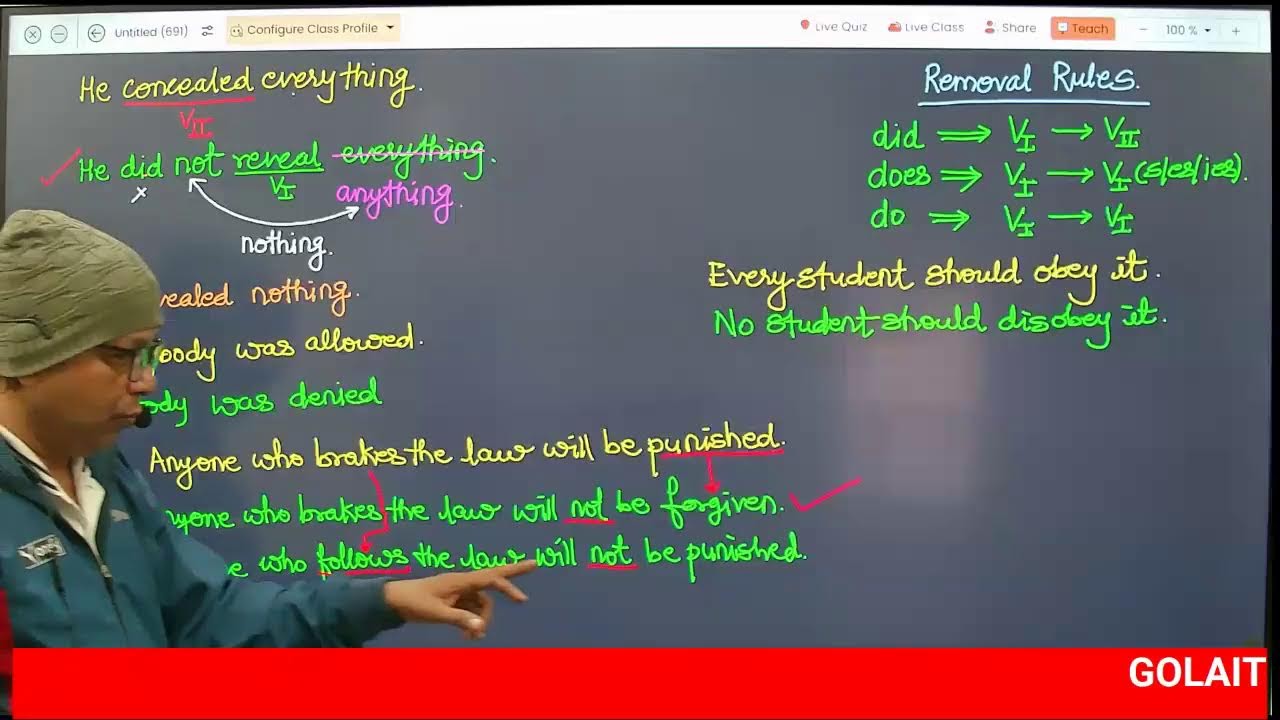 Untitled (691)
Configure Class Profile
Live Quiz
Live Class
Share
Teach
100 %
He concealed everything.
VII
He did not reveal everything.
VI
anything.
nothing.
vealed nothing.
body was allowed.
ody was denied
Anyone who brakes the law will be punished.
nyone who brakes the law will not be forgiven.
e who follows the law will not be punished.
Removal Rules.
did ⟹ VI → VII
does ⟹ VI → VI (s/es/ies).
do ⟹ VI → VI
Every student should obey it.
No student should disobey it.
GOLAIT